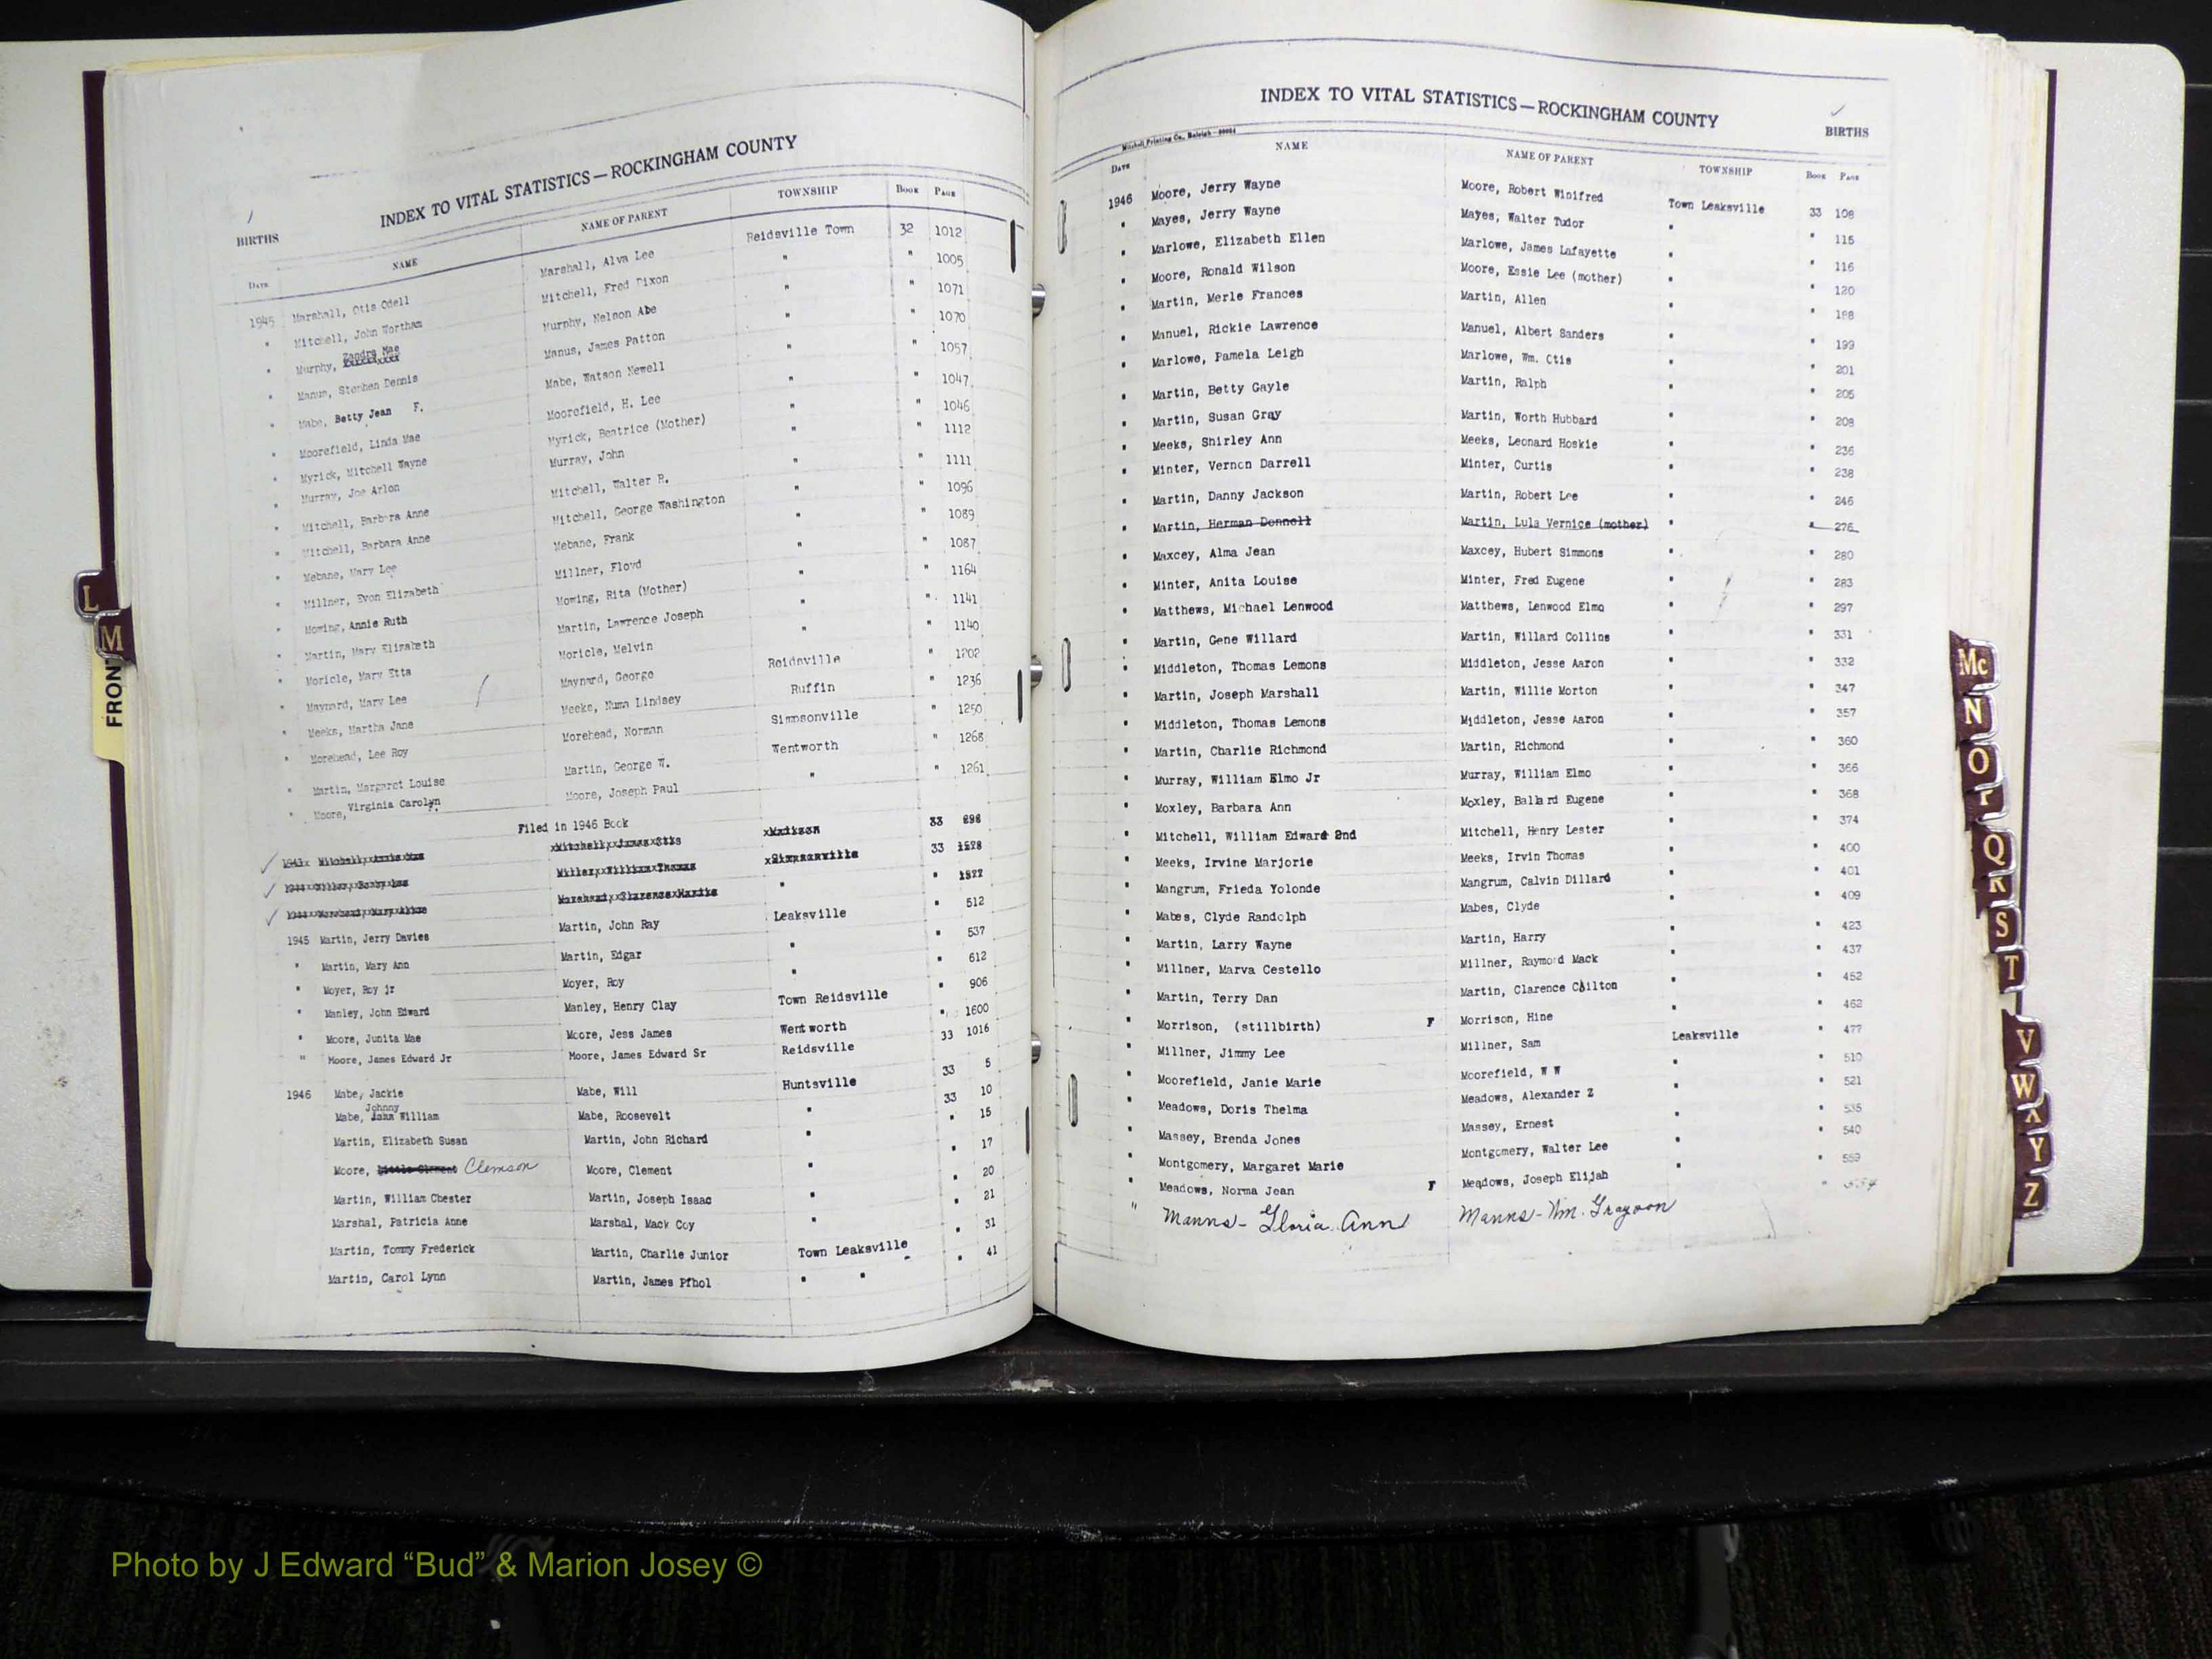 INDEX TO VITAL STATISTICS — ROCKINGHAM COUNTY
BIRTHS
DATE NAME NAME OF PARENT TOWNSHIP BOOK PAGE
1945 Marshall, Otis Odell Marshall, Alva Lee Reidsville Town 32 1012
" Mitchell, John Wortham Mitchell, Fred Dixon " " 1005
" Murphy, Zandra Mae Murphy, Nelson Abe " " 1071
" Manus, Stephen Dennis Manus, James Patton " " 1070
" Mabe, Betty Jean F. Mabe, Watson Newell " " 1057
" Moorefield, Linda Mae Moorefield, H. Lee " " 1047
" Myrick, Mitchell Wayne Myrick, Beatrice (Mother) " " 1046
" Murray, Joe Arlon Murray, John " " 1112
" Mitchell, Barbara Anne Mitchell, Walter R. " " 1111
" Mitchell, Barbara Anne Mitchell, George Washington " " 1096
" Mebane, Mary Lee Mebane, Frank " " 1089
" Millner, Evon Elizabeth Millner, Floyd " " 1087
" Mowing, Annie Ruth Mowing, Rita (Mother) " " 1164
" Martin, Mary Elizabeth Martin, Lawrence Joseph " " 1141
" Moricle, Mary Etta Moricle, Melvin " " 1140
" Maynard, Mary Lee Maynard, George Reidsville " 1202
" Meeks, Martha Jane Meeks, Numa Lindsey Ruffin " 1236
" Morehead, Lee Roy Morehead, Norman Simpsonville " 1250
" Martin, Margaret Louise Martin, George W. Wentworth " 1268
" Moore, Virginia Carolyn Moore, Joseph Paul " " 1261
Filed in 1946 Book
33 898
33 1528
" "
1945 Martin, Jerry Davies Martin, John Ray Leaksville " 512
" Martin, Mary Ann Martin, Edgar " " 537
" Moyer, Roy jr Moyer, Roy " " 612
" Manley, John Edward Manley, Henry Clay Town Reidsville " 906
" Moore, Junita Mae Moore, Jess James Wentworth " 1600
" Moore, James Edward Jr Moore, James Edward Sr Reidsville 33 1016
1946 Mabe, Jackie Mabe, Will Huntsville 33 5
Mabe, Johnny William Mabe, Roosevelt " 33 10
Martin, Elizabeth Susan Martin, John Richard " " 15
Moore, Clemson Moore, Clement " " 17
Martin, William Chester Martin, Joseph Isaac " " 20
Marshal, Patricia Anne Marshal, Mack Coy " " 21
Martin, Tommy Frederick Martin, Charlie Junior Town Leaksville " 31
Martin, Carol Lynn Martin, James Pfhol " " " 41
INDEX TO VITAL STATISTICS — ROCKINGHAM COUNTY
BIRTHS
Mitchell Printing Co., Raleigh
DATE NAME NAME OF PARENT TOWNSHIP BOOK PAGE
1946 Moore, Jerry Wayne Moore, Robert Winifred Town Leaksville 33 108
" Mayes, Jerry Wayne Mayes, Walter Tudor " " 115
" Marlowe, Elizabeth Ellen Marlowe, James Lafayette " " 116
" Moore, Ronald Wilson Moore, Essie Lee (mother) " " 120
" Martin, Merle Frances Martin, Allen " " 198
" Manuel, Rickie Lawrence Manuel, Albert Sanders " " 199
" Marlowe, Pamela Leigh Marlowe, Wm. Otis " " 201
" Martin, Betty Gayle Martin, Ralph " " 205
" Martin, Susan Gray Martin, Worth Hubbard " " 208
" Meeks, Shirley Ann Meeks, Leonard Hoskie " " 236
" Minter, Vernon Darrell Minter, Curtis " " 238
" Martin, Danny Jackson Martin, Robert Lee " " 246
" Martin, Herman Donnell Martin, Lula Vernice (mother) " " 276
" Maxcey, Alma Jean Maxcey, Hubert Simmons " " 280
" Minter, Anita Louise Minter, Fred Eugene " " 283
" Matthews, Michael Lenwood Matthews, Lenwood Elmo " " 297
" Martin, Gene Willard Martin, Willard Collins " " 331
" Middleton, Thomas Lemons Middleton, Jesse Aaron " " 332
" Martin, Joseph Marshall Martin, Willie Morton " " 347
" Middleton, Thomas Lemons Middleton, Jesse Aaron " " 357
" Martin, Charlie Richmond Martin, Richmond " " 360
" Murray, William Elmo Jr Murray, William Elmo " " 366
" Moxley, Barbara Ann Moxley, Ballard Eugene " " 368
" Mitchell, William Edward 2nd Mitchell, Henry Lester " " 374
" Meeks, Irvine Marjorie Meeks, Irvin Thomas " " 400
" Mangrum, Frieda Yolonde Mangrum, Calvin Dillard " " 401
" Mabes, Clyde Randolph Mabes, Clyde " " 409
" Martin, Larry Wayne Martin, Harry " " 423
" Millner, Marva Costello Millner, Raymond Mack " " 437
" Martin, Terry Dan Martin, Clarence Chilton " " 452
" Morrison, (stillbirth) F Morrison, Hine " " 462
" Millner, Jimmy Lee Millner, Sam Leaksville " 477
" Moorefield, Janie Marie Moorefield, W W " " 510
" Meadows, Doris Thelma Meadows, Alexander Z " " 521
" Massey, Brenda Jones Massey, Ernest " " 535
" Montgomery, Margaret Marie Montgomery, Walter Lee " " 540
" Meadows, Norma Jean F Meadows, Joseph Elijah " " 559
" Manns - Gloria Ann Manns - Wm. Grayson "
L
M
FRONT
Mc
N
O
Q
R
S
T
V
W
Y
Z
Photo by J Edward “Bud” & Marion Josey ©